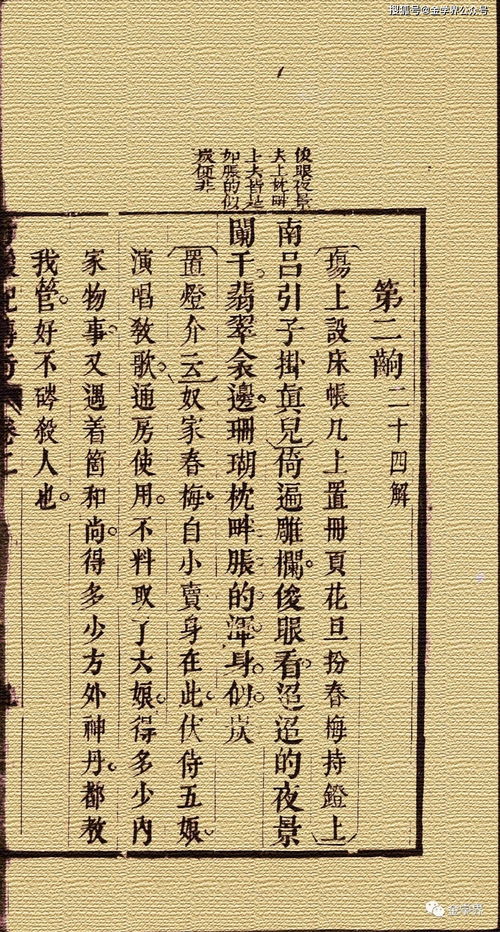 搜狐号@金学界公众号
俊眼夜景
夫上枕畔
上夫皆是
如脹的似
炭便非
第二齣 二十四解
場上設床帳几上置冊頁花旦扮春梅持鐙上
南呂引子掛真兒倚遍雕欄俊眼看迢迢的夜景
闌干翡翠衾邊珊瑚枕畔脹的渾身似炭
置燈介云奴家春梅自小賣身在此伏侍五娘
演唱敎歌通房使用不料取了六娘得多少內
家物事又遇着箇和尚得多少方外神丹都教
我管好不硶殺人也
卷二
金学界